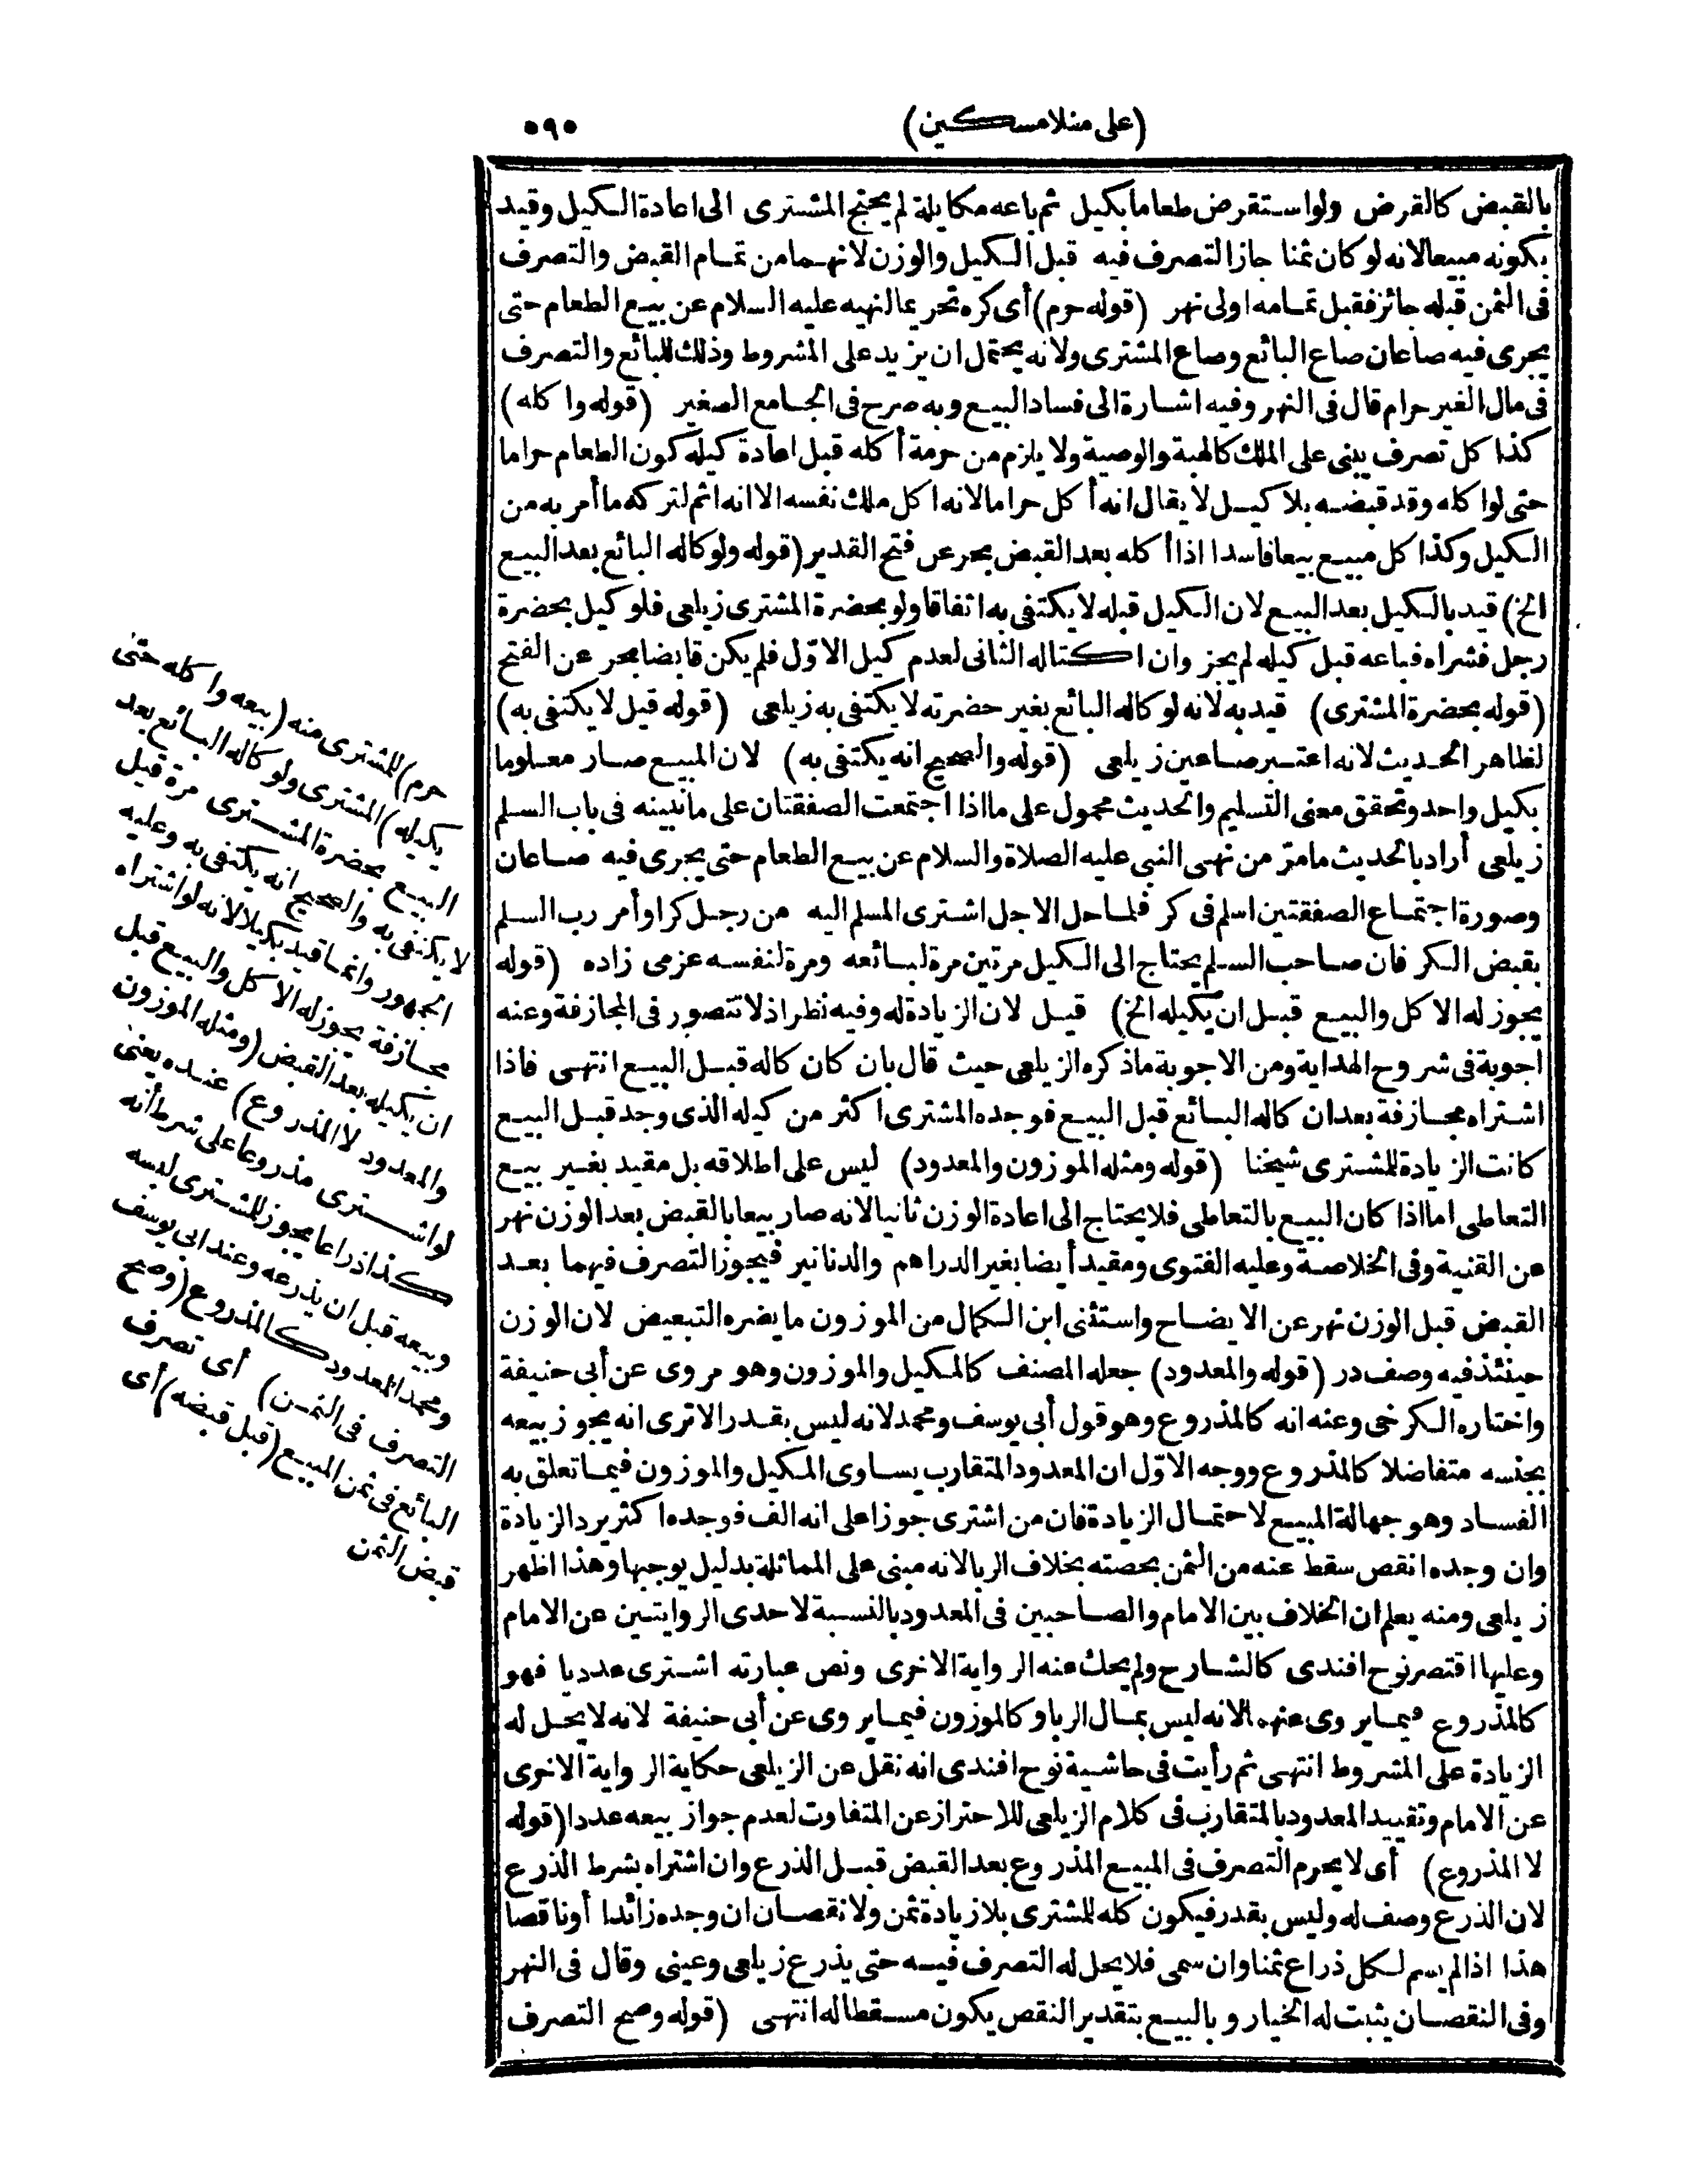 (على منلا مسكين) ٥٩٥
بالقبض كالقرض ولو استقرض طعاما بكيل ثم باعه مكايلة لم يحتج المشترى الى اعادة الكيل وقيد
بكونه مبيعا لانه لو كان ثمنا جاز التصرف فيه قبل الكيل والوزن لانهما من تمام القبض والتصرف
فى الثمن قبله جائز فقبل تمامه اولى نهر (قوله حرم) أى كره تحريما لنهيه عليه السلام عن بيع الطعام حتى
يجرى فيه صاعان صاع البائع وصاع المشترى ولانه يحتمل ان يزيد على المشروط وذلك للبائع والتصرف
فى مال الغير حرام قال فى النهر وفيه اشارة الى فساد البيع وبه صرح فى الجامع الصغير (قوله واكله)
كذا كل تصرف يبنى على الملك كالهبة والوصية ولا يلزم من حرمة أكله قبل اعادة كيله كون الطعام حراما
حتى لو اكله وقد قبضه بلا كيل لا يقال انه أكل حراما لانه اكل ملك نفسه الا انه اثم لتركه ما أمر به من
الكيل وكذا كل مبيع بيعا فاسدا اذا أكله بعد القبض بحر عن فتح القدير (قوله ولو كاله البائع بعد البيع
الخ) قيد بالكيل بعد البيع لان الكيل قبله لا يكتفى به اتفاقا ولو بحضرة المشترى زيلعى فلو كيل بحضرة
رجل فشراه فباعه قبل كيله لم يجز وان اكتاله الثانى لعدم كيل الاوّل فلم يكن قابضا بحر عن الفتح
(قوله بحضرة المشترى) قيد به لانه لو كاله البائع بغير حضرته لا يكتفى به زيلعى (قوله قيل لا يكتفى به)
لظاهر الحديث لانه اعتبر صاعين زيلعى (قوله والصحيح انه يكتفى به) لان المبيع صار معلوما
بكيل واحد وتحقق معنى التسليم والحديث محمول على ما اذا اجتمعت الصفقتان على ما نبينه فى باب السلم
زيلعى أراد بالحديث ما مرّ من نهى النبى عليه الصلاة والسلام عن بيع الطعام حتى يجرى فيه صاعان
وصورة اجتماع الصفقتين اسلم فى كر فلما حل الاجل اشترى المسلم اليه من رجل كرا وأمر رب السلم
بقبض الكر فان صاحب السلم يحتاج الى الكيل مرتين مرة لبائعه ومرة لنفسه عزمى زاده (قوله
يجوز له الاكل والبيع قبل ان يكيله الخ) قيل لان الزيادة له وفيه نظر اذ لا تتصور فى المجازفة وعنه
اجوبة فى شروح الهداية ومن الاجوبة ما ذكره الزيلعى حيث قال بان كان كاله قبل البيع انتهى فاذا
اشتراه مجازفة بعد ان كاله البائع قبل البيع فوجده المشترى اكثر من كيله الذى وجد قبل البيع
كانت الزيادة للمشترى شيخنا (قوله ومثله الموزون والمعدود) ليس على اطلاقه بل مقيد بغير بيع
التعاطى اما اذا كان البيع بالتعاطى فلا يحتاج الى اعادة الوزن ثانيا لانه صار بيعا بالقبض بعد الوزن نهر
عن القنية وفى الخلاصة وعليه الفتوى ومقيد أيضا بغير الدراهم والدنانير فيجوز التصرف فيهما بعد
القبض قبل الوزن نهر عن الايضاح واستثنى ابن الكمال من الموزون ما يضره التبعيض لان الوزن
حينئذ فيه وصف در (قوله والمعدود) جعله المصنف كالمكيل والموزون وهو مروى عن أبى حنيفة
واختاره الكرخى وعنه انه كالمذروع وهو قول أبى يوسف ومحمد لانه ليس بقدر الا ترى انه يجوز بيعه
بجنسه متفاضلا كالمذروع ووجه الاوّل ان المعدود المتقارب يساوى المكيل والموزون فيما تعلق به
الفساد وهو جهالة المبيع لاحتمال الزيادة فان من اشترى جوزا على انه الف فوجده اكثر يرد الزيادة
وان وجده انقص سقط عنه من الثمن بحصته بخلاف الربا لانه مبنى على المماثلة بدليل يوجبها وهذا اظهر
زيلعى ومنه يعلم ان الخلاف بين الامام والصاحبين فى المعدود بالنسبة لاحدى الروايتين عن الامام
وعليها اقتصر نوح افندى كالشارح ولم يحك عنه الرواية الاخرى ونص عبارته اشترى عدديا فهو
كالمذروع فيما يروى عنهما لانه ليس بمال الربا وكالموزون فيما يروى عن أبى حنيفة لانه لا يحل له
الزيادة على المشروط انتهى ثم رأيت فى حاشية نوح افندى انه نقل عن الزيلعى حكاية الرواية الاخرى
عن الامام وتقييد المعدود بالمتقارب فى كلام الزيلعى للاحتراز عن المتفاوت لعدم جواز بيعه عددا (قوله
لا المذروع) أى لا يحرم التصرف فى المبيع المذروع بعد القبض قبل الذرع وان اشتراه بشرط الذرع
لان الذرع وصف له وليس بقدر فيكون كله للمشترى بلا زيادة ثمن ولا نقصان ان وجده زائدا أو ناقصا
هذا اذا لم يسم لكل ذراع ثمنا وان سمى فلا يحل له التصرف فيه حتى يذرع زيلعى وعينى وقال فى النهر
وفى النقصان يثبت له الخيار و بالبيع بتقدير النقص يكون مسقطا له انتهى (قوله وصح التصرف
حرم) للمشترى منه (بيعه واكله حتى
يكيله) المشترى ولو كاله البائع بعد
البيع بحضرة المشترى مرة قيل
لا يكتفى به والصحيح انه يكتفى به وعليه
الجمهور وانما قيد بكيلا لانه لو اشتراه
مجازفة يجوز له الاكل والبيع قبل
ان يكيله بعد القبض (ومثله الموزون
والمعدود لا المذروع) عنده يعنى
لو اشترى مذروعا على شرط أنه
كذا ذراعا يجوز للمشترى لبسه
وبيعه قبل ان يذرعه وعند ابى يوسف
ومحمد المعدود كالمذروع (وصح
التصرف فى الثمن) أى تصرف
البائع فى ثمن المبيع (قبل قبضه) أى
قبض الثمن